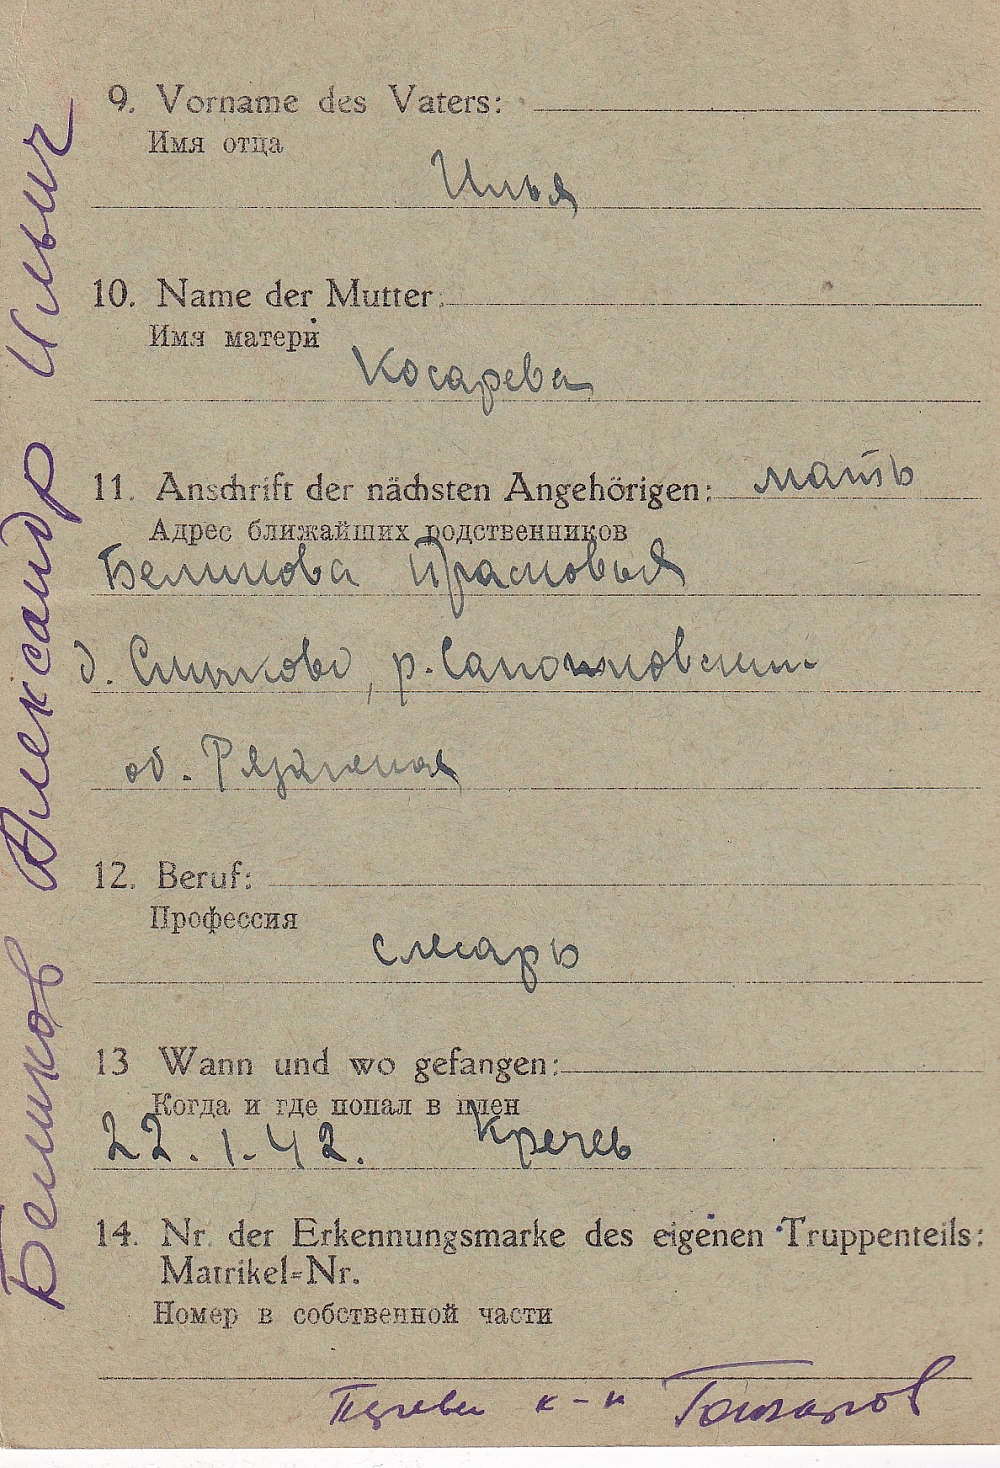 9. Vorname des Vaters:
Имя отца
Илья
10. Name der Mutter:
Имя матери
Косарева
11. Anschrift der nächsten Angehörigen: мать
Адрес ближайших родственников
Беликова Прасковья
д. Смыково, р. Сапожковский
об. Рязанская
12. Beruf:
Профессия
слесарь
13 Wann und wo gefangen:
Когда и где попал в плен
22.1.42.
14. Nr. der Erkennungsmarke des eigenen Truppenteils:
Matrikel=Nr.
Номер в собственной части
к-н
Беликов Александр Ильич